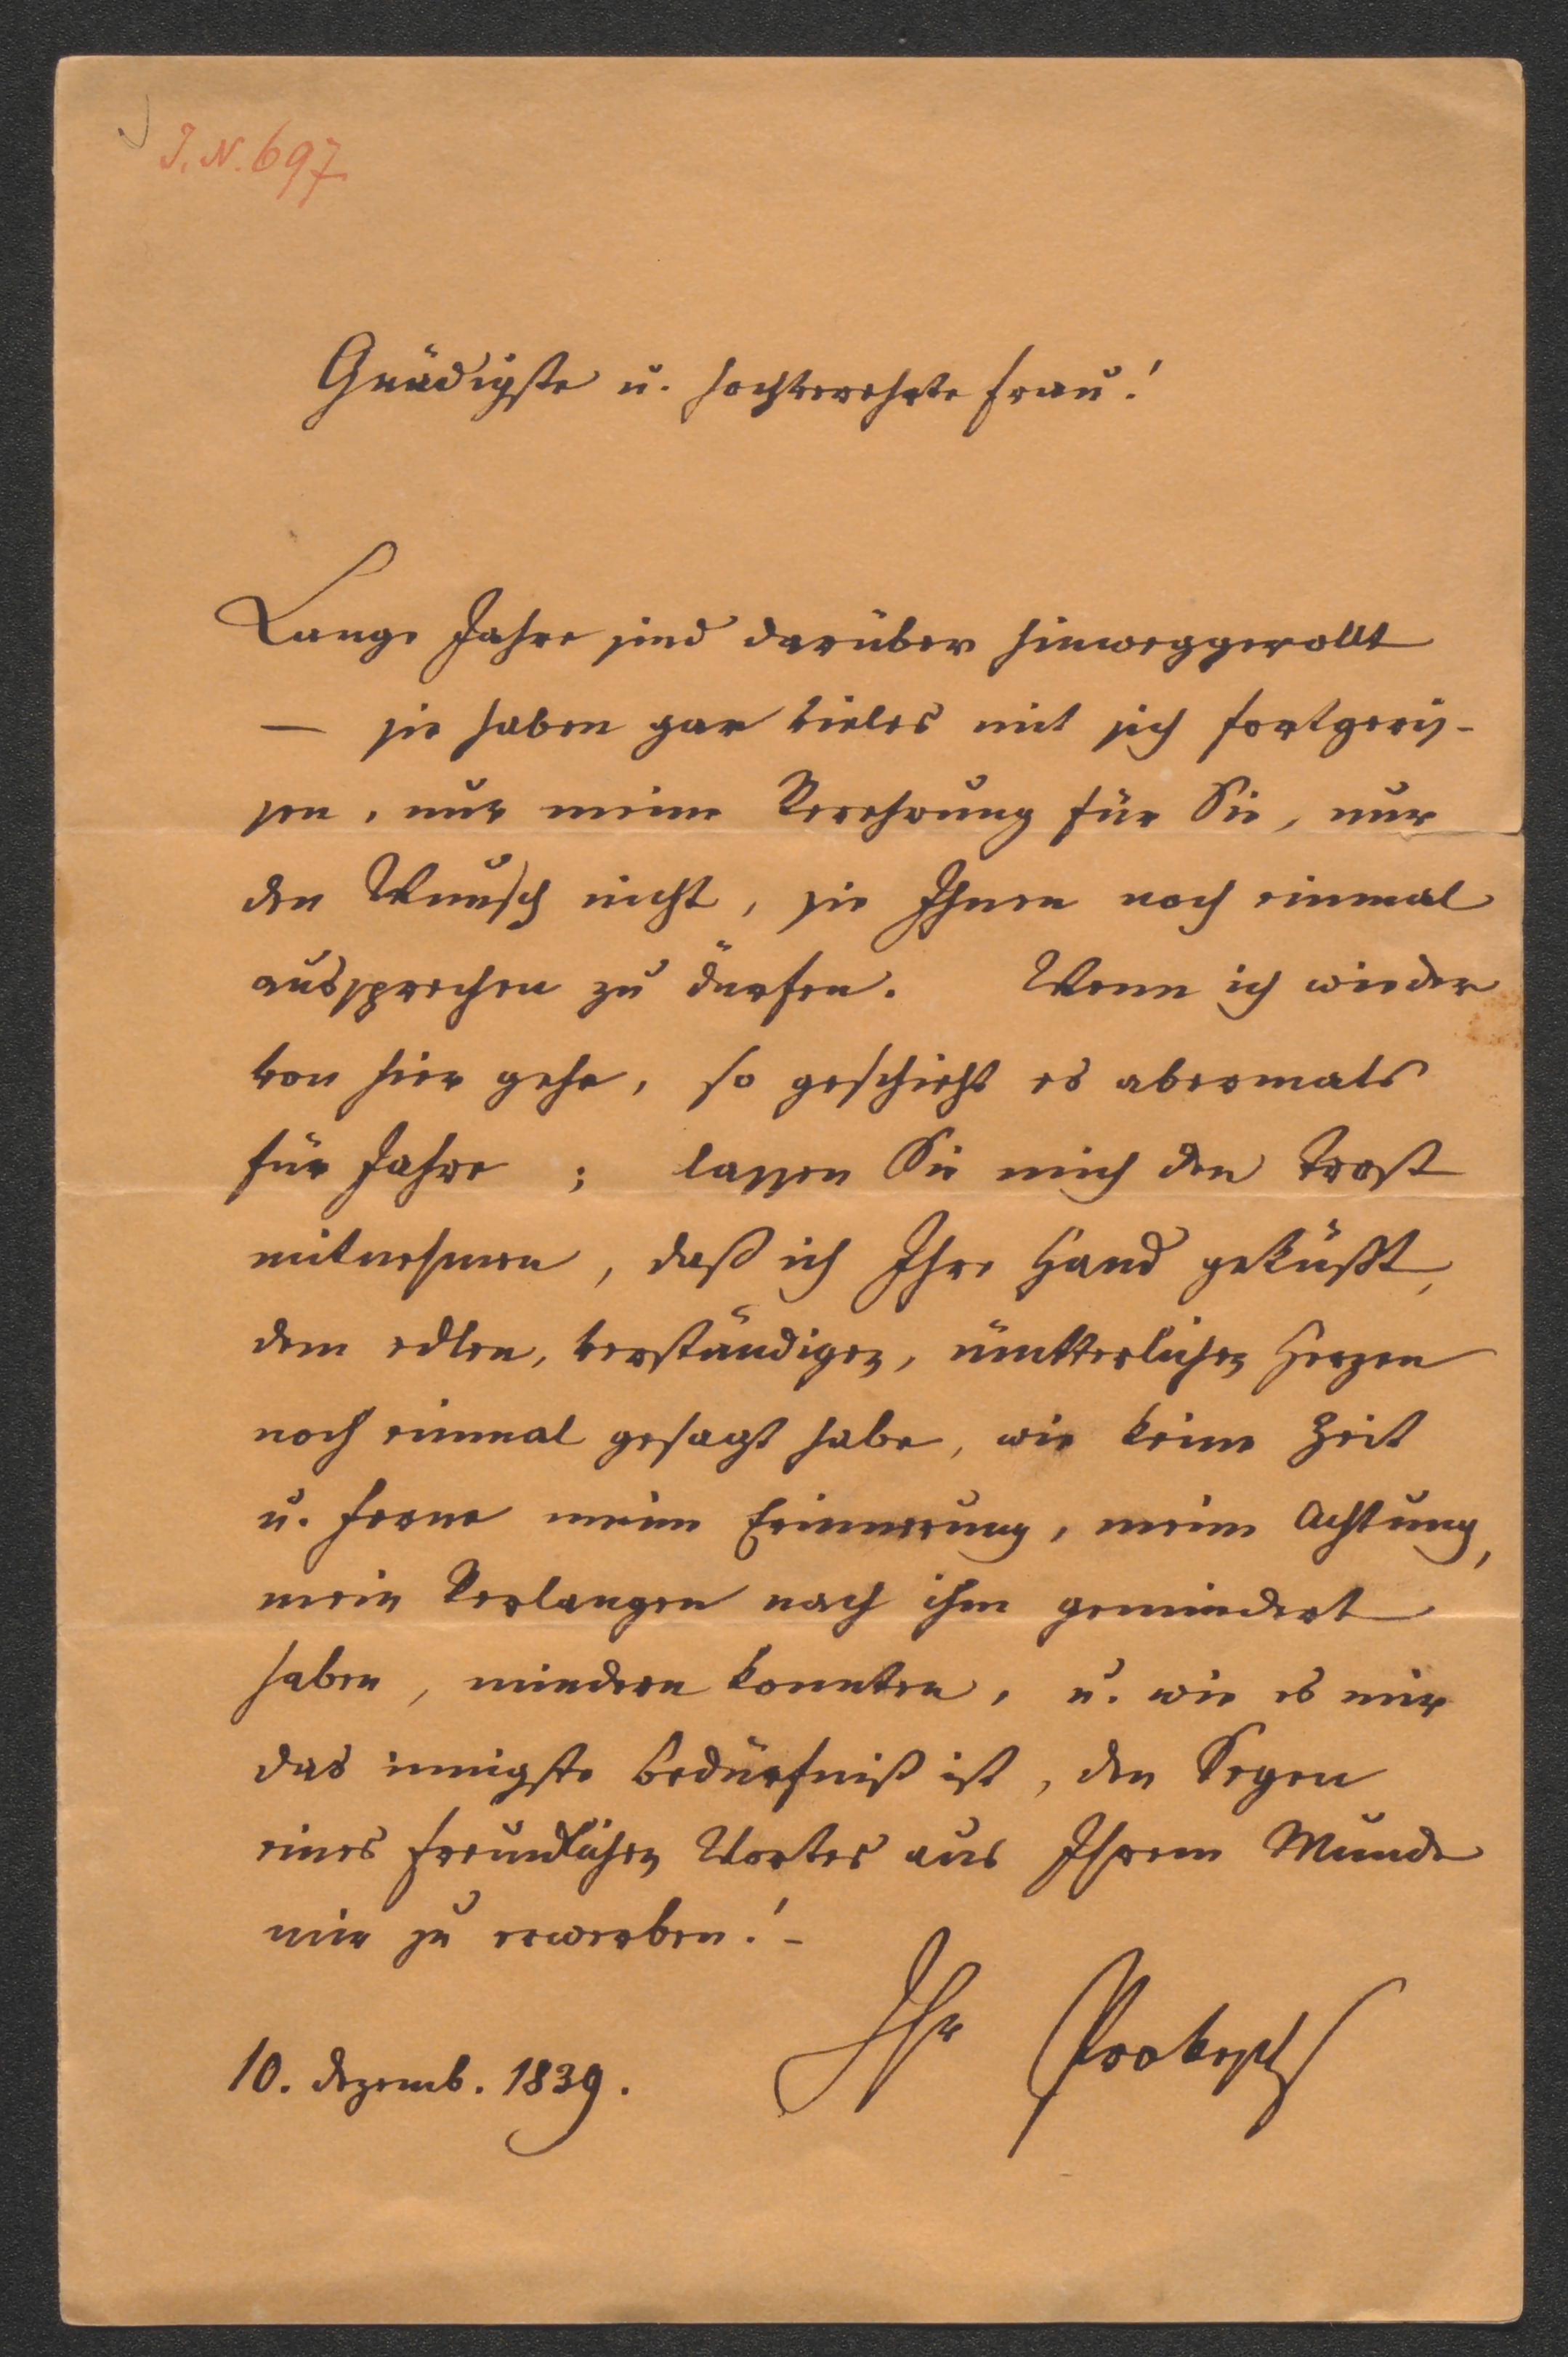 J. N. 697
Gnädigste u. hochverehrte Frau!
Lange Jahre sind darüber hinweggerollt
— sie haben gar vieles mit sich fortgeris-
sen, nur meine Verehrung für Sie, nur
den Wunsch nicht, sie Ihnen noch einmal
aussprechen zu dürfen. Wenn ich wieder
von hier gehe, so geschieht es abermals
für Jahre; lassen Sie mich den Trost
mitnehmen, daß ich Ihre Hand geküßt,
dem edlen, verständigen, mütterlichen Herzen
noch einmal gesagt habe, wie keine Zeit
u. Ferne meine Erinnerung, meine Achtung,
mein Verlangen nach ihm gemindert
haben, mindern konnten, u. wie es mir
das innigste Bedürfniß ist, den Segen
eines freundlichen Wortes aus Ihrem Munde
mir zu erwerben! –
Ihr Prokesch
10. Dezemb. 1839.